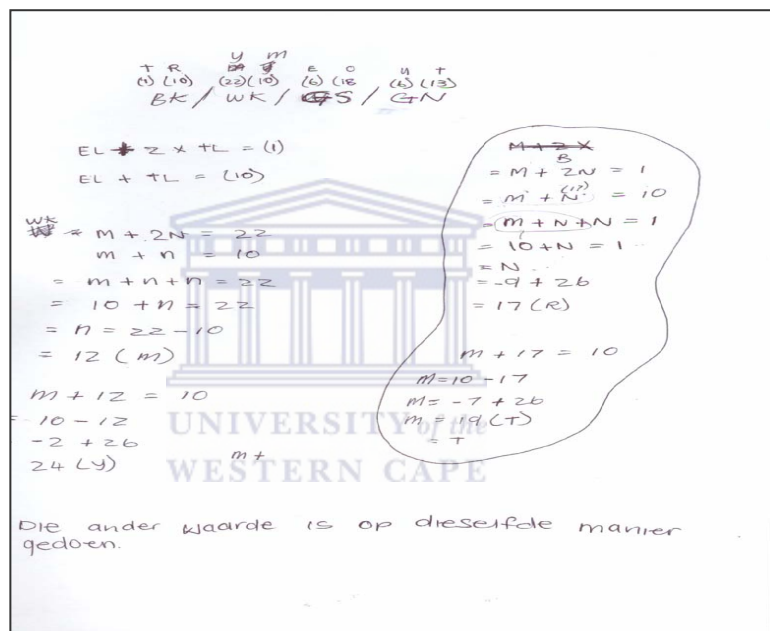 Y M
T R E O Y T
(1) (10) (22) (10) (6) (18 (6) (13)
BK / WK / GS / GN
EL + 2 x TL = (1)
EL + TL = (10)
WK
= M + 2N = 22
m + n = 10
= m + n + n = 22
= 10 + n = 22
= n = 22 - 10
= 12 (m)
m + 12 = 10
= 10 - 12
-2 + 26
24 (y)
m +
M + 2 x
B
= M + 2N = 1
(17)
= m + N = 10
= m + N + N = 1
= 10 + N = 1
= N
= -9 + 26
= 17 (R)
m + 17 = 10
m = 10 - 17
m = -7 + 26
m = 19 (T)
= T
UNIVERSITY of the
WESTERN CAPE
Die ander waarde is op dieselfde manier
gedoen.